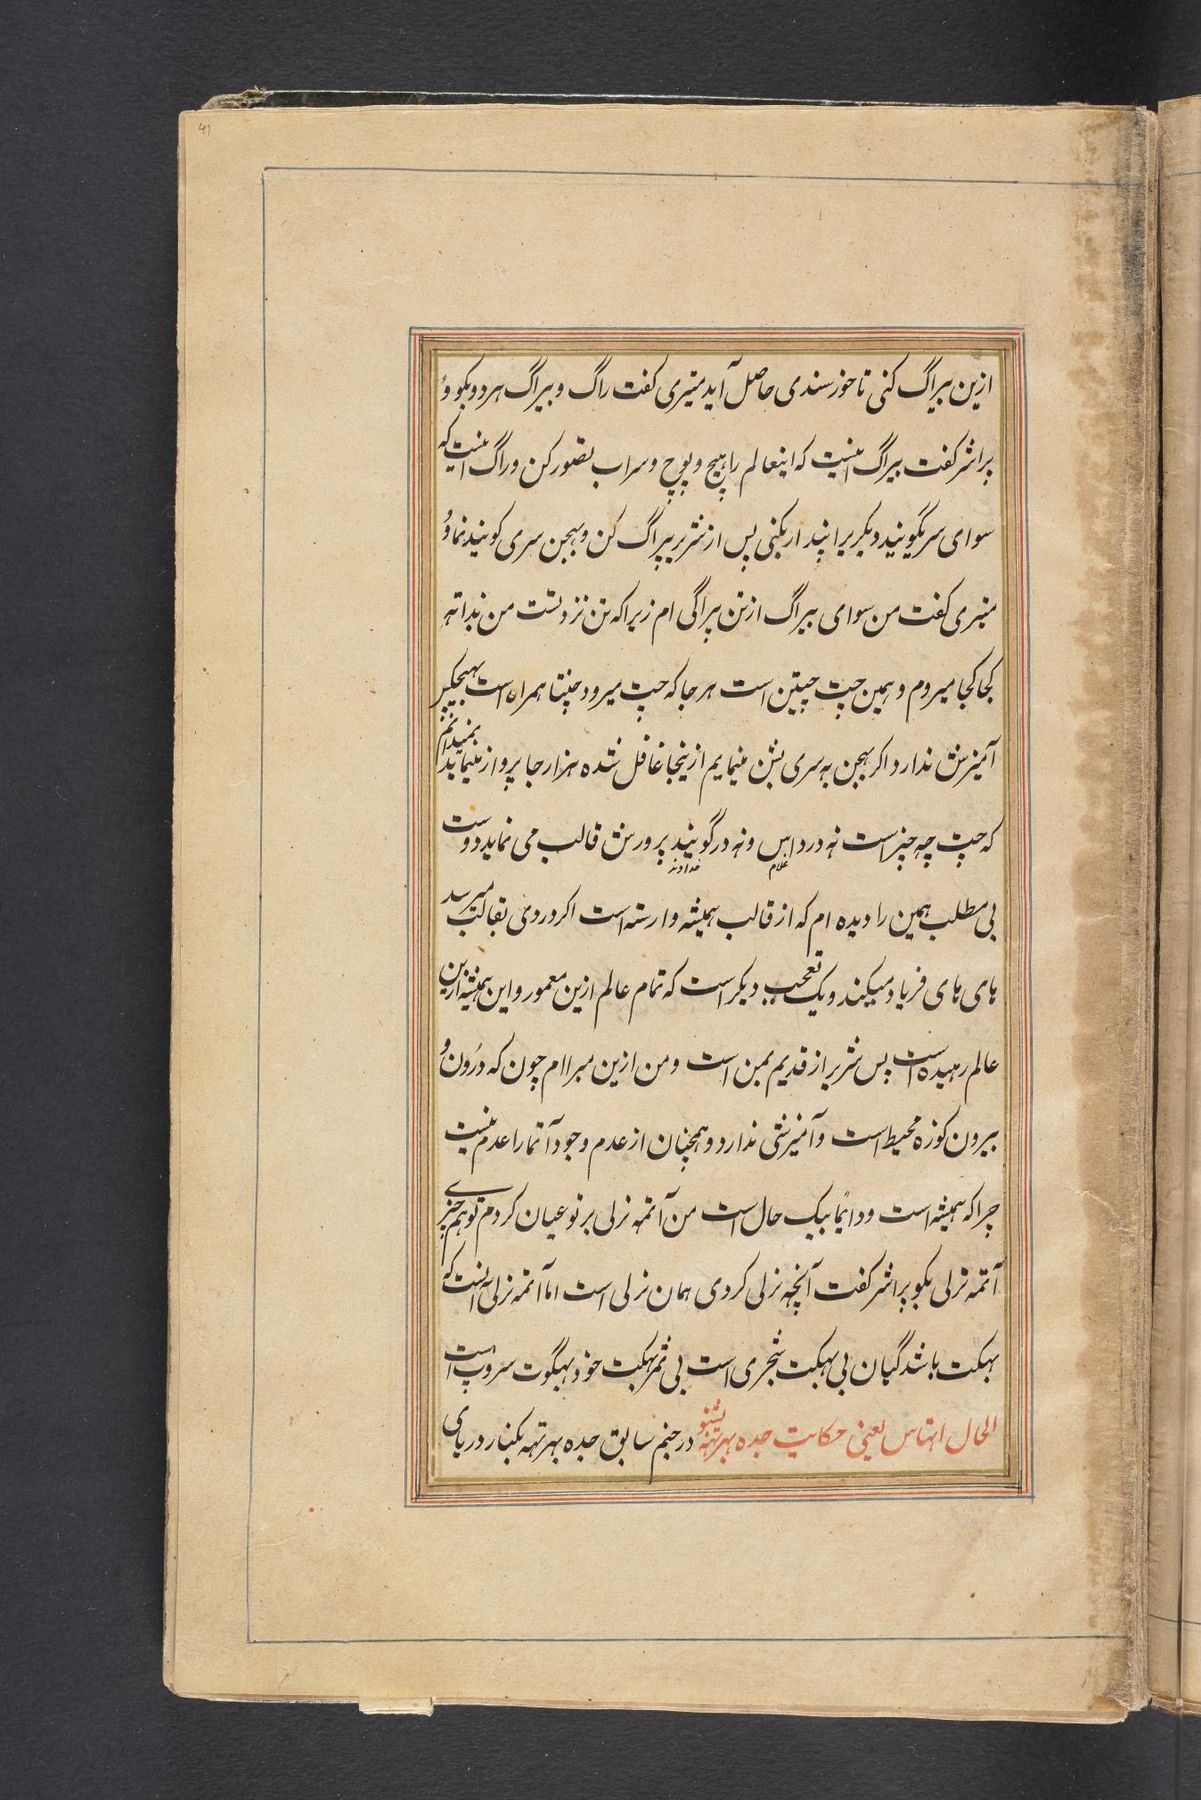 ۴۱
ازین بیراگ کنی تا خورسندی حاصل آید میتری کفت راگ و بیراگ هر دو بکو
پراشر کفت بیراگ اینست که اینعالم را هیچ و پوچ و سراب تصور کن و راگ اینست که
سوای سریگوبند دیکریرا
میتری کفت من سوای بیراگ ازین بیراگی ام زیرا که تن نزد تست من ندانم
کجا کجا میروم و همین چت چیتن است هر جا که چت میرود چنتا همراه است بهیچکیر
آمیزش ندارد اکر بهجن به سری بشن مینمایم ازینجا غافل شده هزار جا پرواز مینماید نمیدانم
که چت چه چیز است نه در داس و نه در گوبند پرورش قالب می نماید دوست
غلام خداوند
بی مطلب همین را دیده ام که از قالب همیشه وارسته است اکر دردی بقالب میرسد
های های فریاد میکند و یک تعجب دیکر است که تمام عالم ازین معمور و این همیشه ازین
عالم رهیده است پس شریر از قدیم بمن است و من ازین مبرا ام چون که درون و
بیرون کوزه محیط است و آمیزشی ندارد و همچنان از عدم وجود آتما را عدم نیست
چرا که همیشه است و دائما بیک حال است من آتمه نرلی بر تو عیان کردم تو هم چیزی
آتمه نرلی بکو پراشر کفت آنچه نرلی کردی همان نرلی است اما آتمه نرلی آنست که
بهکت باشد گیان بی بهکت شجری است بی ثمر بهکت خود بهگوت سروپ است
الحال اتهاس یعنی حکایت جده بهرتهه بشنو در جنم سابق جده بهرتهه بکنار دریای